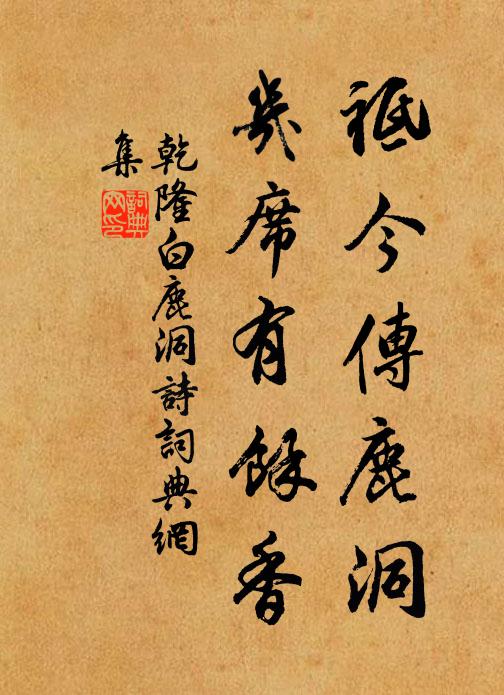 祗今傳鹿洞
幾席有餘香
乾隆白鹿洞詩詞典網
集
詞典網印